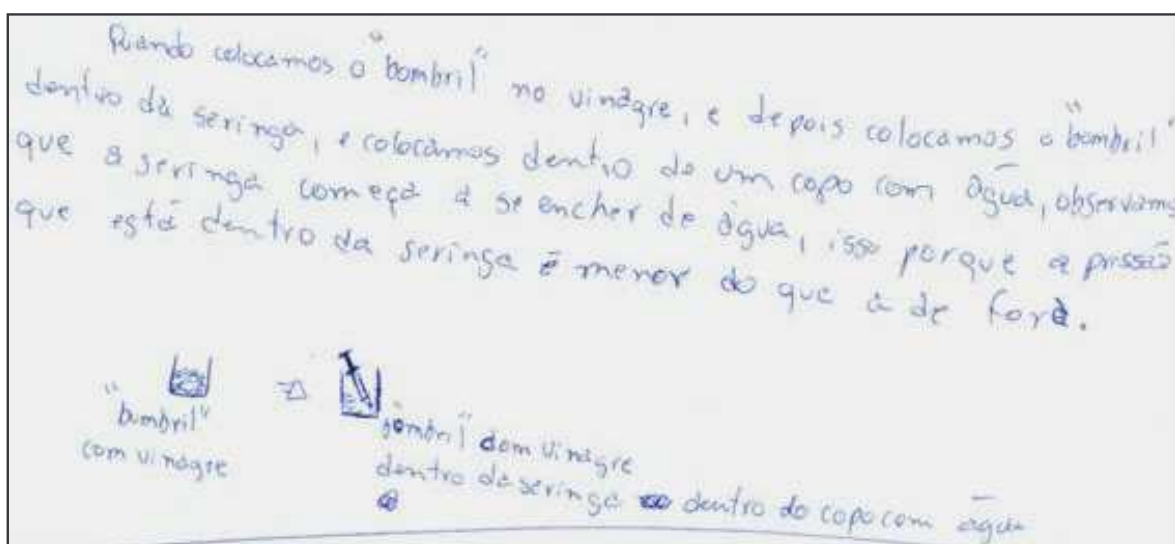 Quando colocamos o "bombril" no vinagre, e depois colocamos o "bombril"
dentro da seringa, e colocamos dentro de um copo com água, observamo
que a seringa começa a se encher de água, isso porque a pressão
que está dentro da seringa é menor do que a de fora.
"bombril"
com vinagre
"bombril" com vinagre
dentro da seringa dentro do copo com água